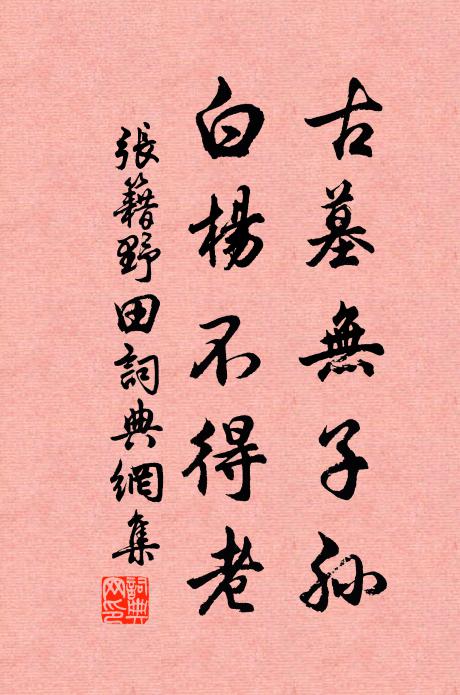 古墓無子孫
白楊不得老
張籍野田詞典網集
詞典網印